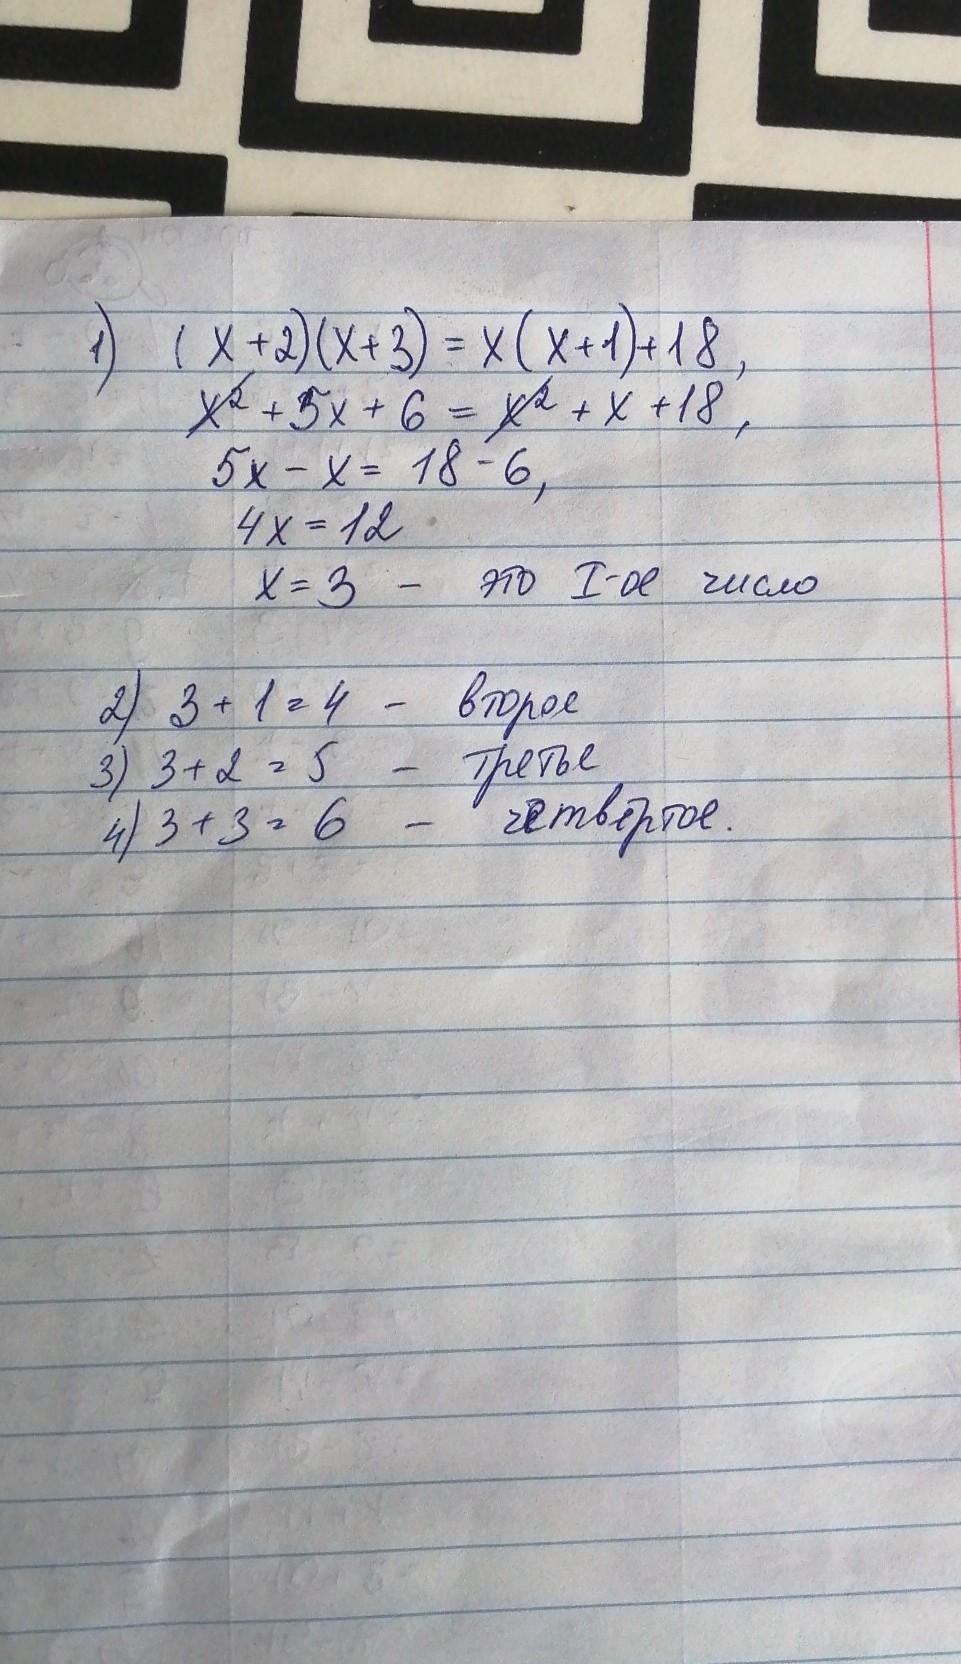 1) (x+2)(x+3) = x(x+1)+18,
x² + 5x + 6 = x² + x + 18,
5x - x = 18 - 6,
4x = 12
x = 3 - это I-ое число
2) 3 + 1 = 4 - второе
3) 3 + 2 = 5 - третье
4) 3 + 3 = 6 - четвертое.